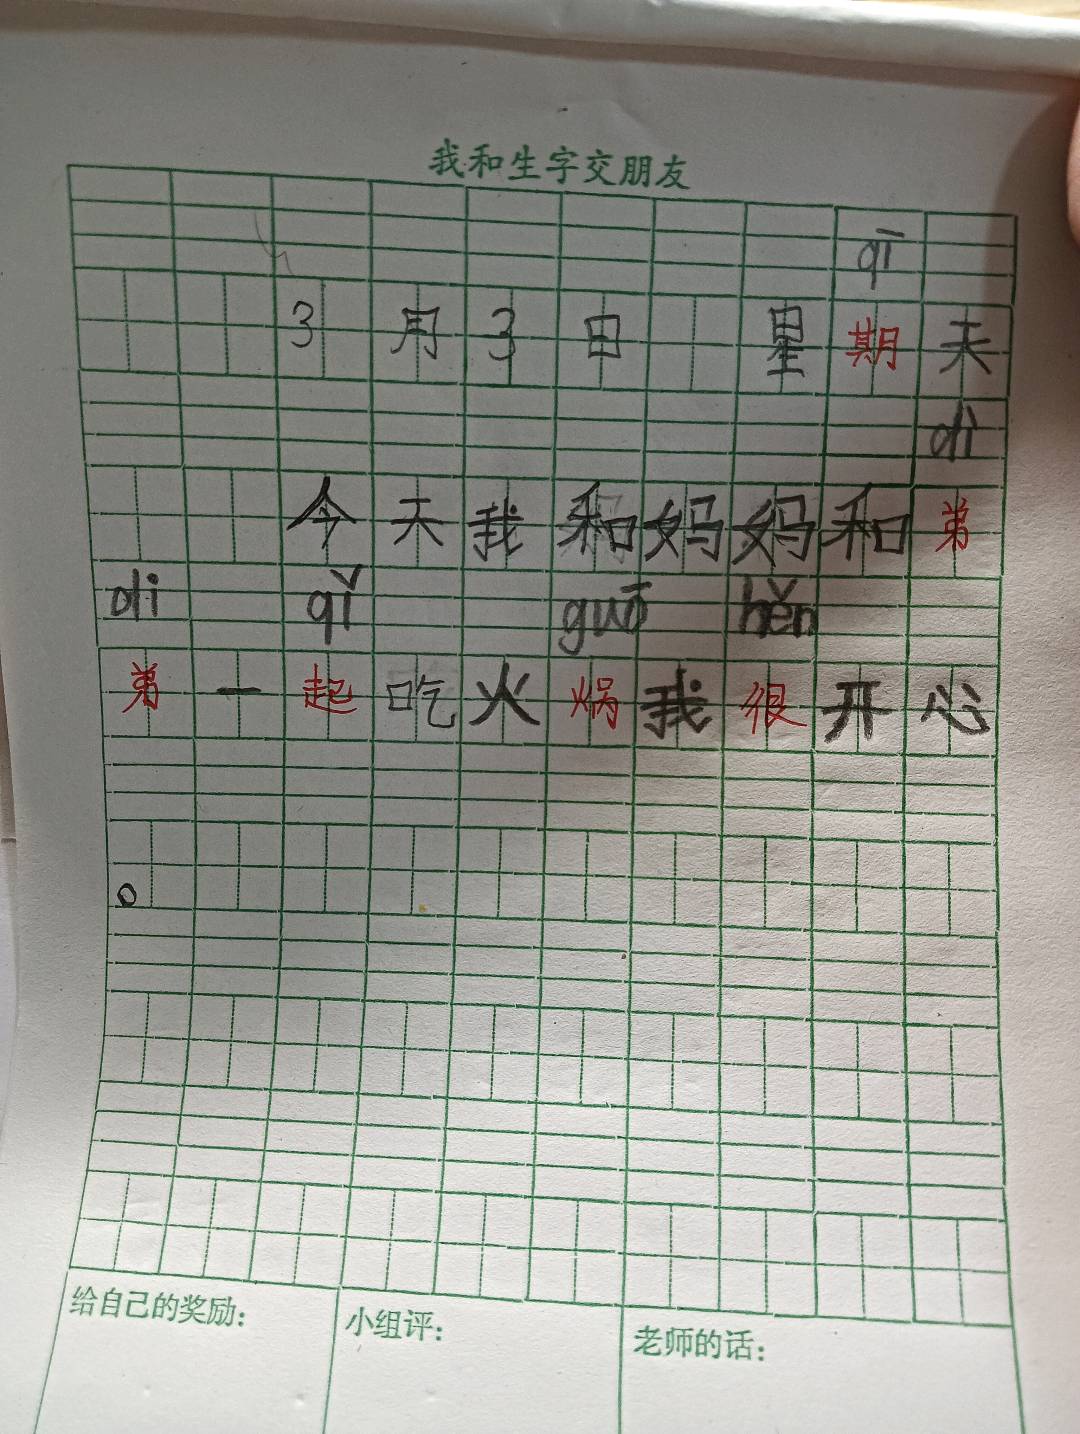 我和生字交朋友
qī
3月3日 星期天
dì
今天我和妈妈和弟
di qǐ guō hěn
弟一起吃火锅我很开心
。
给自己的奖励：
小组评：
老师的话：